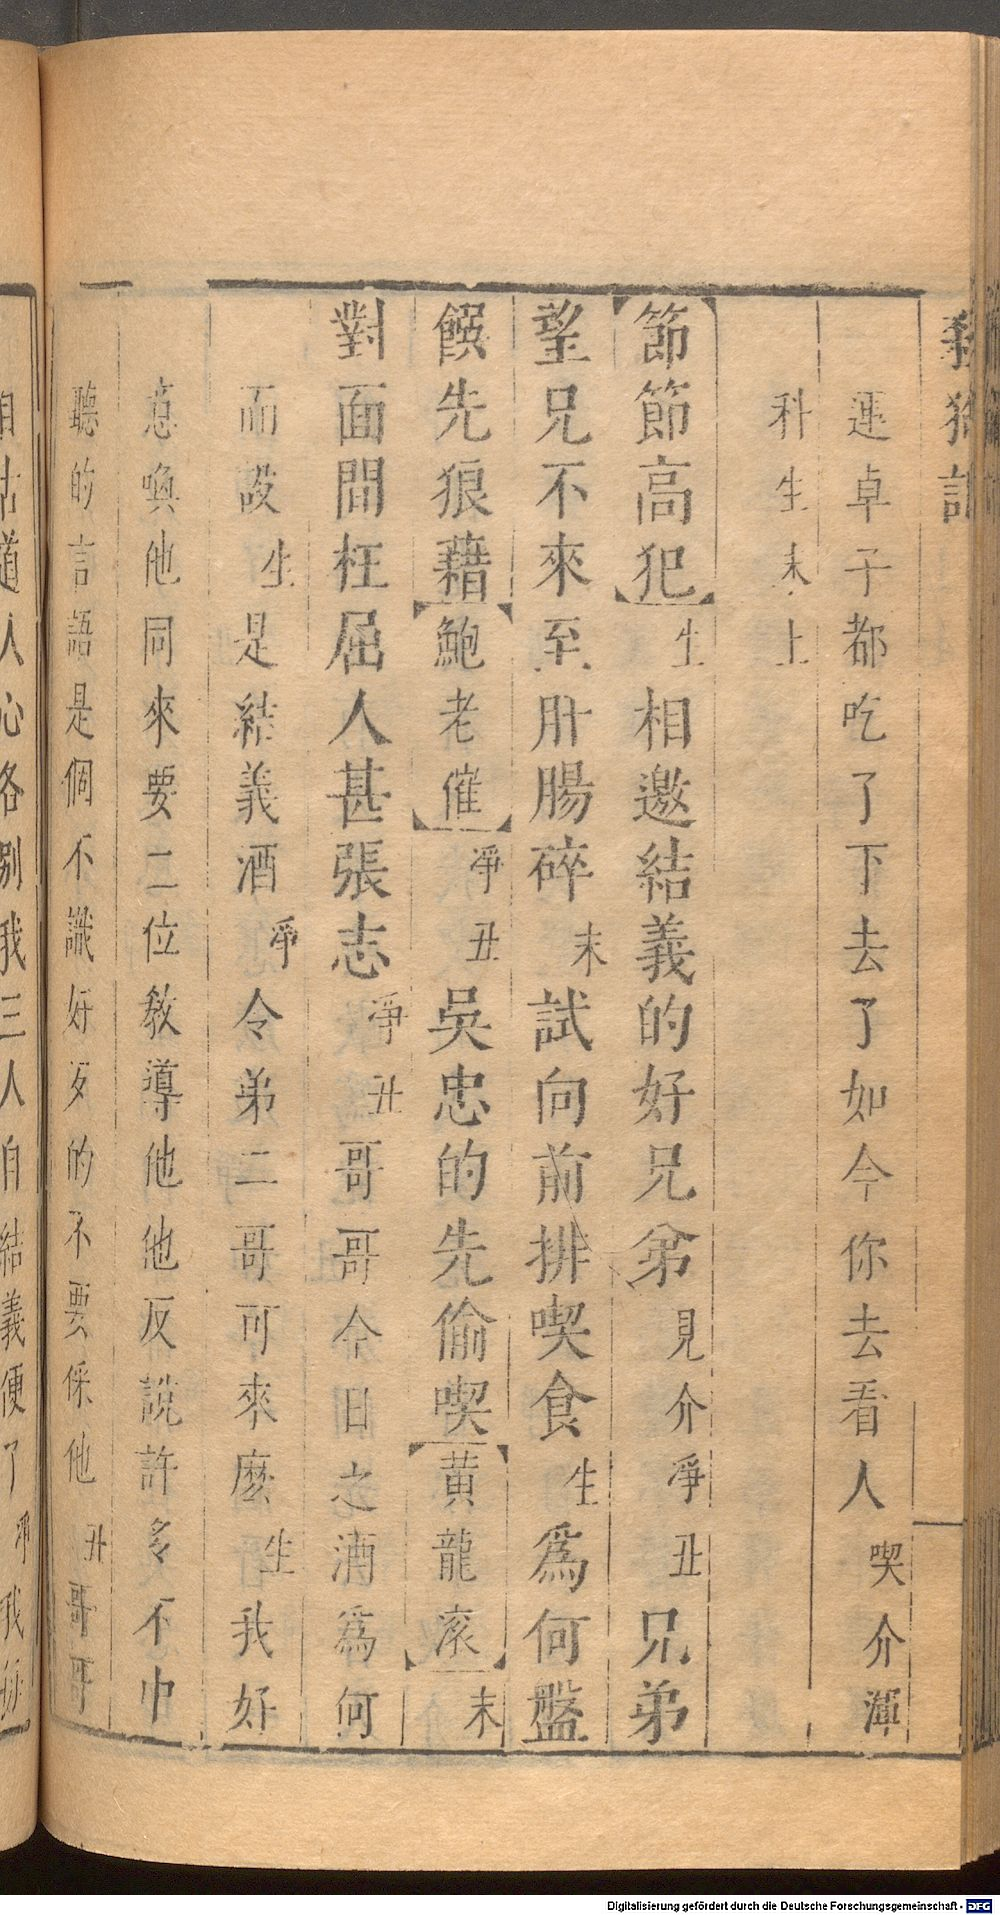 殺狗記
運卓子都吃了下去了如今你去看人喫介渾
科生末上
【節節高犯】生相邀結義的好兄弟見介淨丑兄弟
望兄不來至肝腸碎末試向前排喫食生爲何盤
饌先狼藉【鮑老催】淨丑吳忠的先偷喫【黄龍滚】末
對面間枉屈人甚張志淨丑哥哥今日之酒爲何
而設生是結義酒淨令弟二哥可來麽生我好
意喚他同來要二位敎導他他反說許多不中
聽的言語是個不識好歹的不要保他丑哥哥
道人心各別我三人自結義便了淨
Digitalisierung gefördert durch die Deutsche Forschungsgemeinschaft - DFG